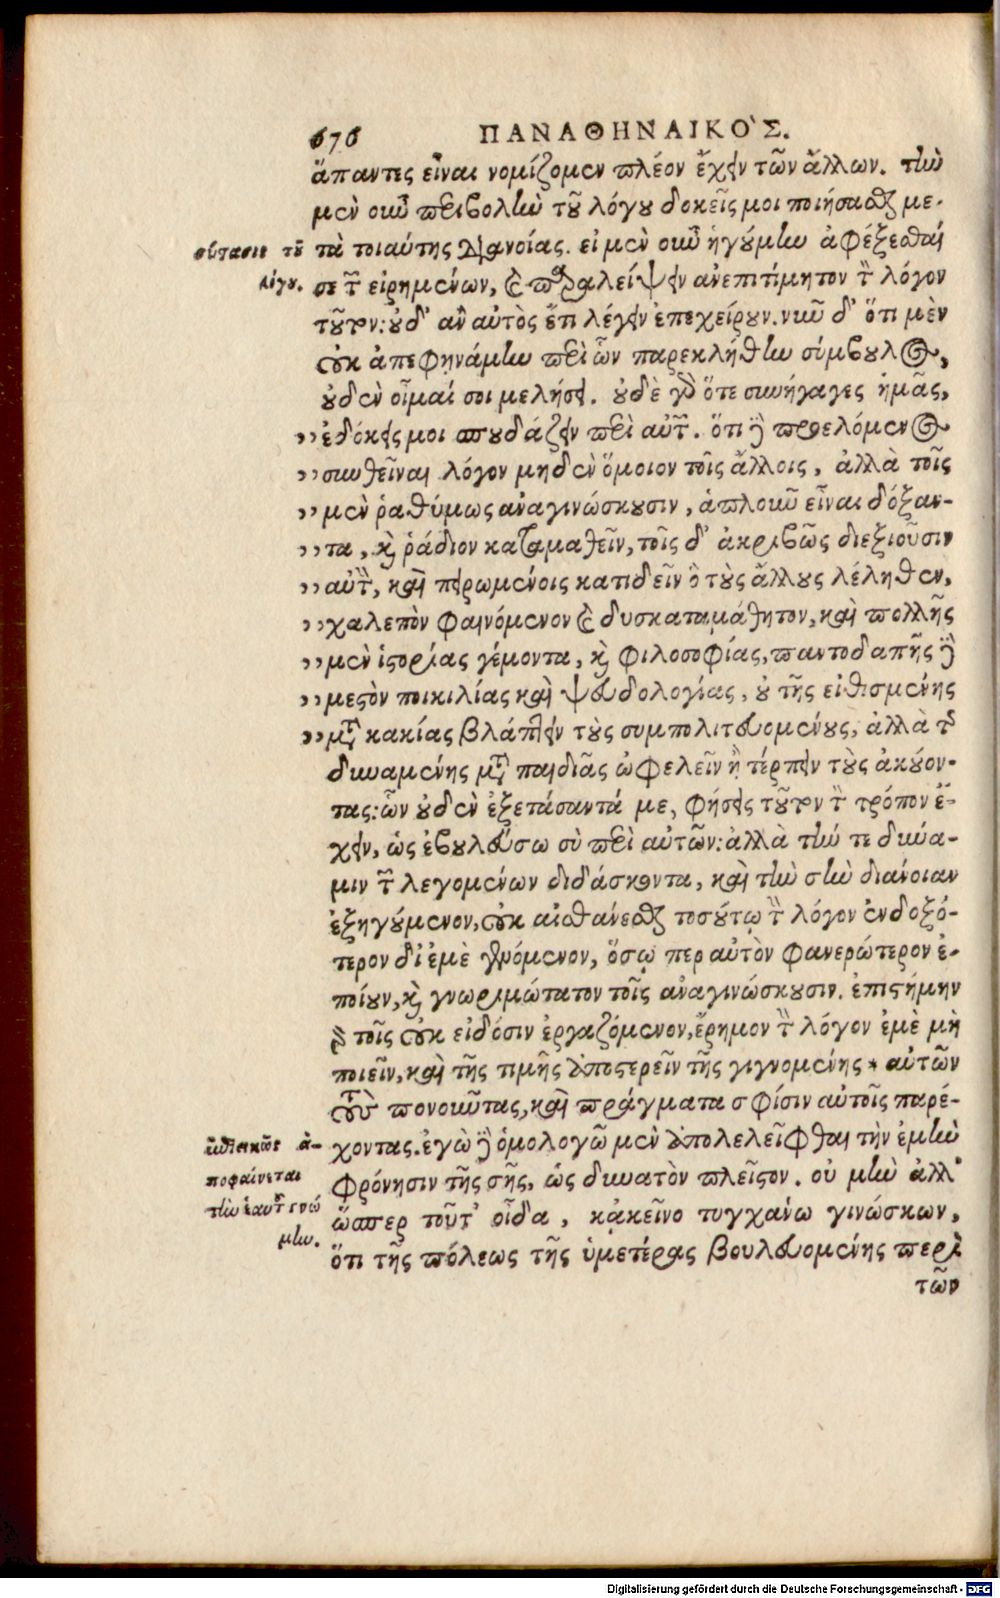 676 ΠΑΝΑΘΗΝΑΙΚΟ῾Σ.
ἅπαντες εἶναι νομίζομεν πλέον ἔχειν τῶν ἄλλων. τὴν
μὲν οὖν περιβολὴν τοῦ λόγου δοκεῖς μοι ποιήσασθαι με-
σύστασις τοῦ τὰ τοιαύτης διανοίας. εἰ μὲν οὖν ἡγούμην ἀφέξεσθαί
λόγου. σε τῶν εἰρημένων, καὶ παραλείψειν ἀνεπιτίμητον τὸν λόγον
τοῦτον: οὐδ' ἂν αὐτὸς ἔτι λέγειν ἐπεχείρουν. νῦν δ' ὅτι μὲν
οὐκ ἀπεφηνάμην περὶ ὧν παρεκλήθην σύμβουλος,
οὐδὲν οἶμαί σοι μελήσειν. οὐδὲ γὰρ ὅτε συνήγαγες ἡμᾶς,
,,ἐδόκεις μοι σπουδάζειν περὶ αὐτῶν. ὅτι δὲ προελόμενος
,,συνθεῖναι λόγον μηδὲν ὅμοιον τοῖς ἄλλοις, ἀλλὰ τοῖς
,,μὲν ῥαθύμως ἀναγινώσκουσιν, ἁπλοῦν εἶναι δόξαν-
,,τα, καὶ ῥᾴδιον καταμαθεῖν, τοῖς δ' ἀκριβῶς διεξιοῦσιν
,,αὐτὸν, καὶ πειρωμένοις κατιδεῖν ὃ τοὺς ἄλλους λέληθεν,
,,χαλεπὸν φαινόμενον καὶ δυσκαταμάθητον, καὶ πολλῆς
,,μὲν ἱστορίας γέμοντα, καὶ φιλοσοφίας, παντοδαπῆς δὲ
,,μεστὸν ποικιλίας καὶ ψευδολογίας, οὐ τῆς εἰθισμένης
,,μετὰ κακίας βλάπτειν τοὺς συμπολιτευομένους, ἀλλὰ τῆς
δυναμένης μετὰ παιδιᾶς ὠφελεῖν ἢ τέρπειν τοὺς ἀκούον-
τας: ὧν οὐδὲν ἐξετάσαντά με, φήσεις τοῦτον τὸν τρόπον ἔ-
χειν, ὡς ἐβουλεύσω σὺ περὶ αὐτῶν: ἀλλὰ τήν τε δύνα-
μιν τῶν λεγομένων διδάσκοντα, καὶ τὴν σὴν διάνοιαν
ἐξηγούμενον, οὐκ αἰσθάνεσθαι τοσούτῳ τὸν λόγον ἐνδοξό-
τερον δι' ἐμὲ γενόμενον, ὅσῳ περ αὐτὸν φανερώτερον ἐ-
ποίουν, καὶ γνωριμώτατον τοῖς ἀναγινώσκουσιν. ἐπιστήμην
γὰρ τοῖς οὐκ εἰδόσιν ἐργαζόμενον, ἔρημον τὸν λόγον ἐμὲ μὴ
ποιεῖν, καὶ τῆς τιμῆς ἀποστερεῖν τῆς γιγνομένης * αὐτῶν
τοὺς πονοῦντας, καὶ πράγματα σφίσιν αὐτοῖς παρέ-
ἠθικῶς ἀ- χοντας. ἐγὼ δὲ ὁμολογῶ μὲν ἀπολελεῖφθαι τὴν ἐμὴν
ποφαίνεται φρόνησιν τῆς σῆς, ὡς δυνατὸν πλεῖστον. οὐ μὴν ἀλλ'
τὴν ἑαυτοῦ γνώ ὥσπερ τοῦτ' οἶδα, κἀκεῖνο τυγχάνω γινώσκων,
μην. ὅτι τῆς πόλεως τῆς ὑμετέρας βουλευομένης περὶ
τῶν
Digitalisierung gefördert durch die Deutsche Forschungsgemeinschaft - DFG